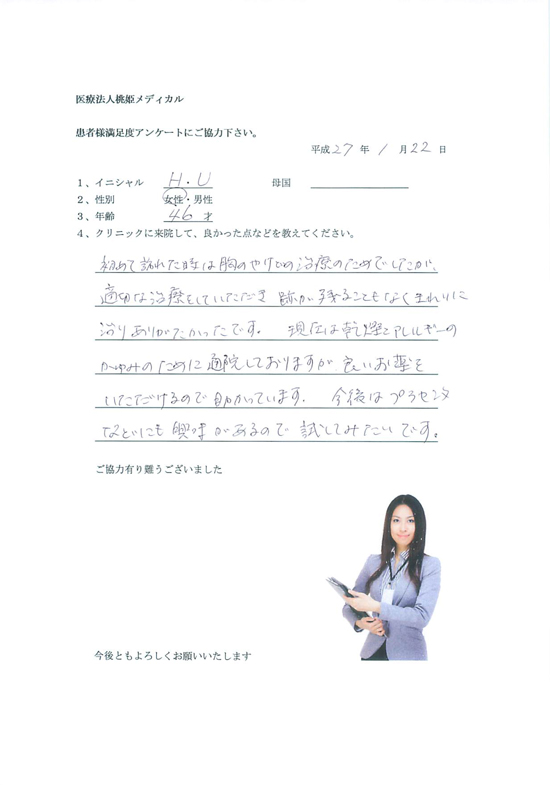 医療法人桃姫メディカル
患者様満足度アンケートにご協力下さい。
平成 27 年 1 月 22 日
1、イニシャル H・U 母国
2、性別 女性・男性
3、年齢 46 才
4、クリニックに来院して、良かった点などを教えてください。
初めて訪れた時は胸のやけどの治療のためでしたが、
適切な治療をしていただき 跡が残ることもなくきれいに
治りありがたかったです。 現在は乾燥とアレルギーの
かゆみのために通院しておりますが 良いお薬を
いただけるので助かっています。 今後はプラセンタ
などにも興味があるので試してみたいです。
ご協力有り難うございました
今後ともよろしくお願いいたします